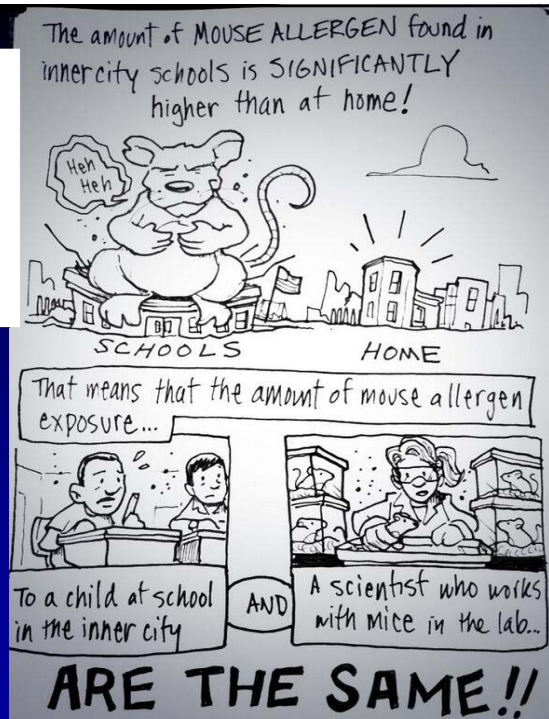 The amount of MOUSE ALLERGEN found in
inner city schools is SIGNIFICANTLY
higher than at home!
Heh
Heh
SCHOOLS
HOME
That means that the amount of mouse allergen
exposure...
To a child at school
in the inner city
AND
A scientist who works
with mice in the lab...
ARE THE SAME!!